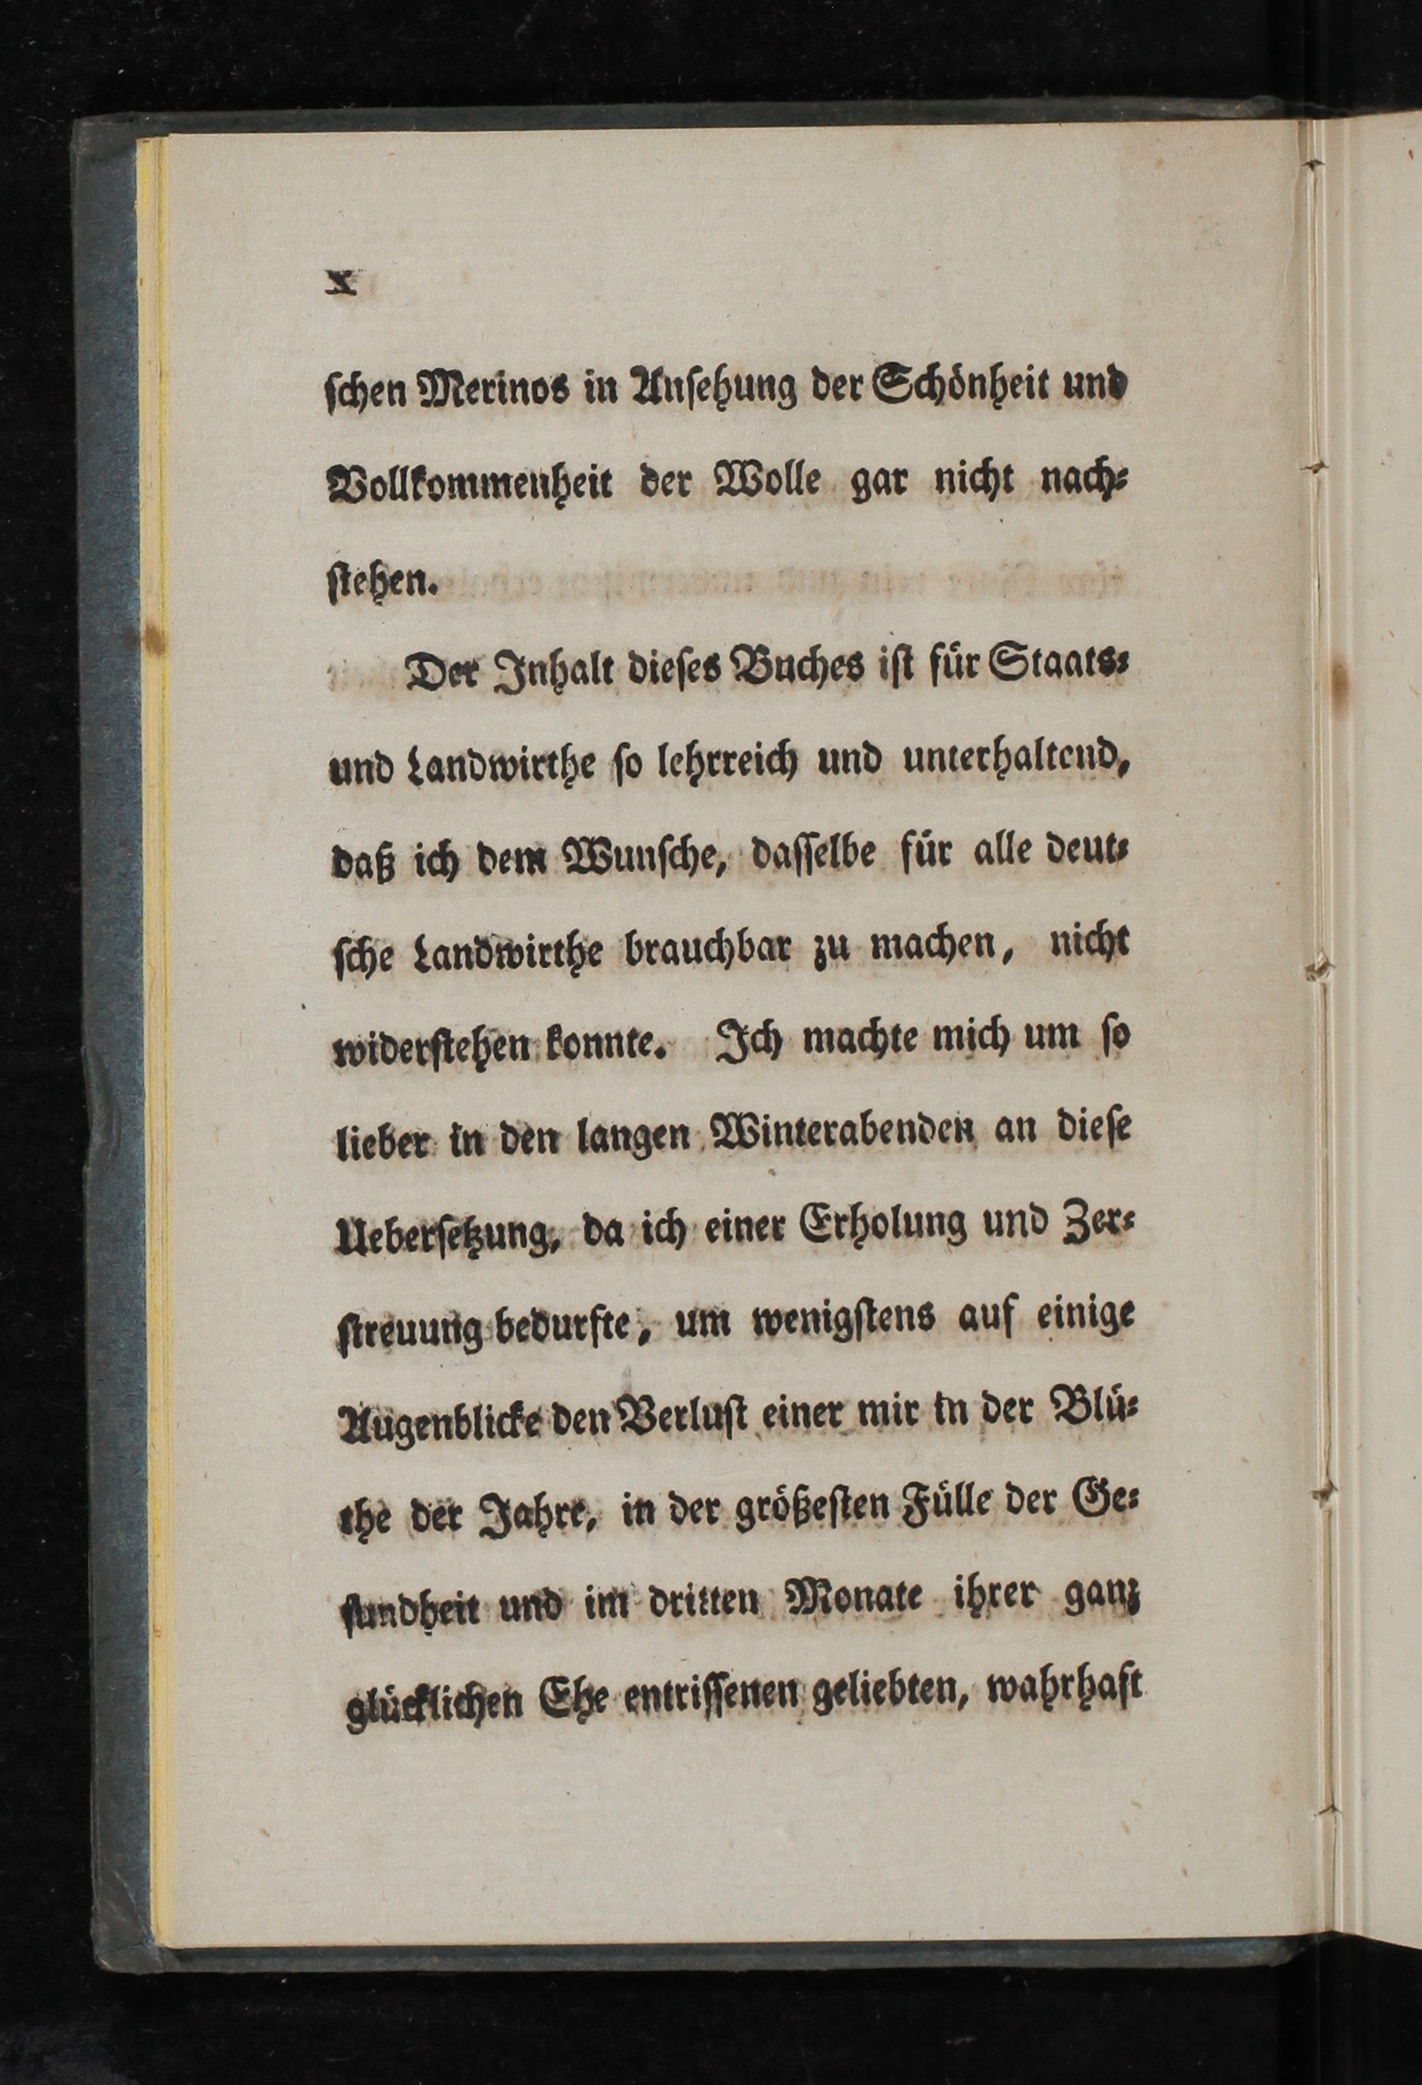 x
ſchen Merinos in Anſehung der Schönheit und
Vollkommenheit der Wolle gar nicht nach⸗
ſtehen.
Der Inhalt dieſes Buches iſt für Staats⸗
und Landwirthe ſo lehrreich und unterhaltend,
daß ich dem Wunſche, daſſelbe für alle deut⸗
ſche Landwirthe brauchbar zu machen, nicht
widerſtehen konnte. Ich machte mich um ſo
lieber in den langen Winterabenden an dieſe
Ueberſetzung, da ich einer Erholung und Zer⸗
ſtreuung bedurfte, um wenigſtens auf einige
Augenblicke den Verluſt einer mir in der Blü⸗
the der Jahre, in der größeſten Fülle der Ge⸗
ſundheit und im dritten Monate ihrer ganz
glücklichen Ehe entriſſenen geliebten, wahrhaft